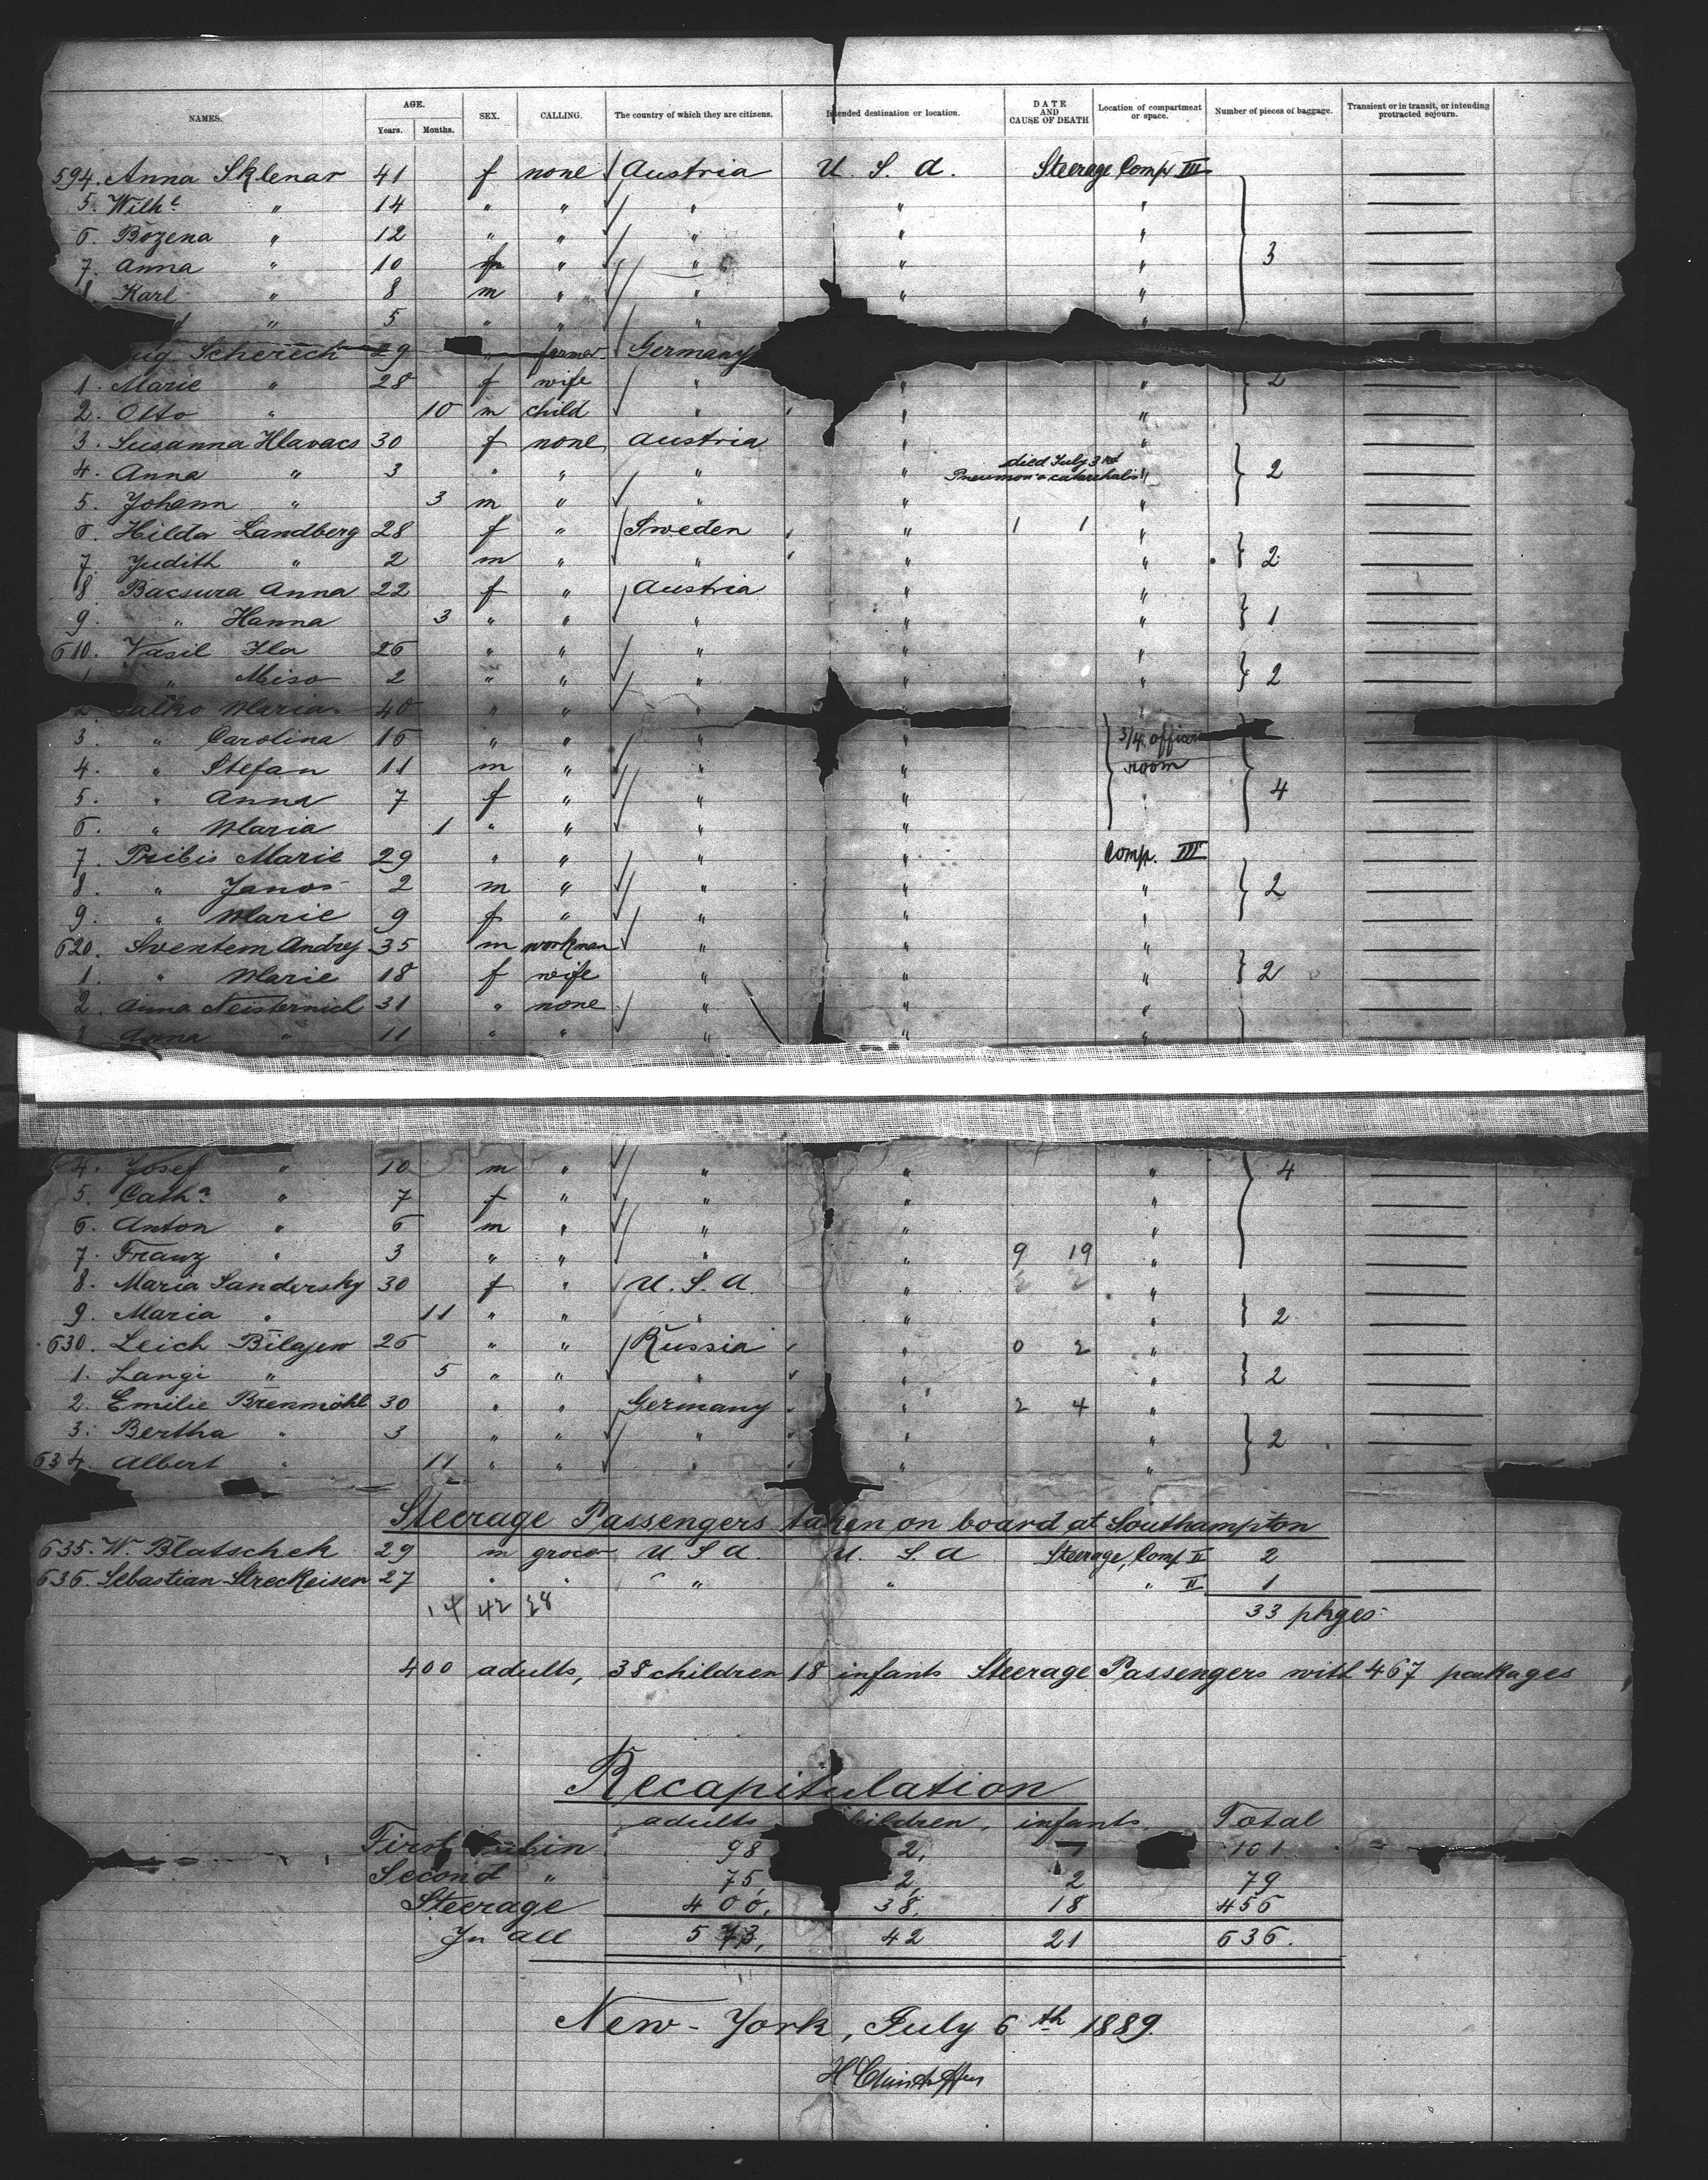 NAMES. AGE. Years. Months. SEX. CALLING. The country of which they are citizens. Intended destination or location. DATE AND CAUSE OF DEATH Location of compartment or space. Number of pieces of baggage. Transient or in transit, or intending protracted sojourn.
594. Anna Sklenar 41 f none Austria U. S. A. Steerage Comp III
5. Wilh 14 " " " " "
6. Bozena " 12 " " " " "
7. Anna " 10 f " " " " 3
8. Karl " 8 m " " " "
" 5 " " " "
Scherech 29 " farmer Germany
1. Marie " 28 f wife " " " 2
2. Otto " 10 m child " " "
3. Susanna Hlavacs 30 f none Austria " "
4. Anna " 3 " " " " died July 3rd Pneumonia catarrhalis " 2
5. Johann " 3 m " " " "
6. Hilda Landberg 28 f " Sweden " 1 1 "
7. Judith " 2 m " " " " 2
8. Bacsura Anna 22 f " Austria " "
9. " Hanna 3 " " " " " 1
610. Vasil Ila 26 " " " " "
1. " Miso 2 " " " " " 2
2. Maria 40 " " " "
3. " Carolina 16 " " " " 3/4. officer
4. " Stefan 11 m " " " room
5. " Anna 7 f " " " " 4
6. " Maria 1 " " " "
7. Pribis Marie 29 " " " " Comp. III
8. " Janos 2 m " " " " 2
9. " Marie 9 f " " " "
620. Sventem Andrej 35 m workman " " "
1. " Marie 18 f wife " " " 2
2. Anna Neisternich 31 " none " " "
Anna " 11 " " " " "
4. Josef " 10 m " " " " 4
5. Cath.a " 7 f " " " "
6. Anton " 6 m " " " "
7. Franz " 3 " " " " 9 19 "
8. Maria Sandersky 30 f " U. S. A. " "
9. Maria " 11 " " " " " 2
630. Leich Bilajew 26 " " Russia " 0 2 "
1. Langi " 5 " " " " " 2
2. Emilie Brenmöhl 30 " " Germany " 2 4 "
3. Bertha " 3 " " " " " 2
634. Albert " 11 " " " " "
Steerage Passengers taken on board at Southampton
635. W. Blatschek 29 m grocer U. S. A. U. S. A Steerage, Comp II 2
636. Sebastian Streckeisen 27 " " " " " II 1
14 42 28 33 pkges
400 adults, 38 children 18 infants Steerage Passengers with 467 packages
Recapitulation
adults children, infants, Total
First Cabin 98 2, 101
Second " 75, 2, 2 79
Steerage 400, 38, 18 456
In all 573, 42 21 636.
New-York, July 6th 1889.